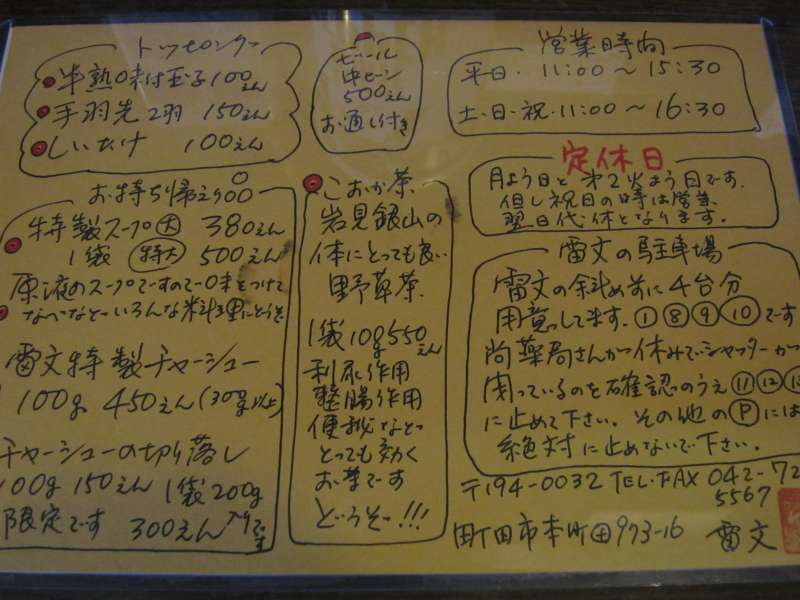 トッピング
半熟味付玉子100えん
手羽先2羽 150えん
しいたけ 100えん
ビール
中ビン
500えん
お通し付き
営業時間
平日・11:00〜15:30
土・日・祝・11:00〜16:30
定休日
月よう日と第2火よう日です.
但し祝日の時は営業
翌日代休となります.
お持ち帰えり
特製スープ 大 380えん
1袋 特大 500えん
原液のスープですので味をつけて
なべなどいろんな料理にどうぞ
雷文特製チャーシュー
100g 450えん(300g以上)
チャーシューの切り落し
100g 150えん 1袋200g
限定です 300えん 入りです
こおか茶
岩見銀山の
体にとっても良い
野草茶
1袋10g550えん
利尿作用
整腸作用
便秘などに
とっても効く
お茶です
どうぞっ!!!
雷文の駐車場
雷文の斜め前に4台分
用意してます.①⑧⑨⑩です
尚薬局さんが休みでシャッターが
閉っているのを確認のうえ⑪⑫⑬
に止めて下さい.その他のⓅには
絶対に止めないで下さい.
〒194-0032 TEL・FAX 042-72
5567
町田市本町田973-16 雷文